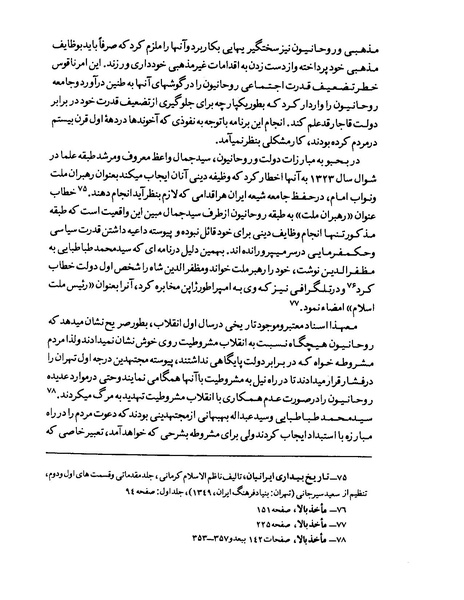 مذهبی و روحانیون نیز سختگیریهایی بکار برد و آنها را ملزم کرد که صرفاً باید بوظایف
مذهبی خود پرداخته و از دست زدن به اقدامات غیرمذهبی خودداری ورزند. این امر ناقوس
خطر تضعیف قدرت اجتماعی روحانیون را در گوشهای آنها به طنین درآورد و جامعه
روحانیون را وادار کرد که بطور یکپارچه برای جلوگیری از تضعیف قدرت خود در برابر
دولت قاجار قد علم کند. انجام این برنامه با توجه به نفوذی که آخوندها در دهۀ اول قرن بیستم
در مردم کرده بودند، کار مشکلی بنظر نمیآمد.
در بحبوبه مبارزات دولت و روحانیون، سیدجمال واعظ معروف و مرشد طبقه علما در
شوال سال ۱۳۲۳ به آنها اخطار کرد که وظیفه دینی آنان ایجاب میکند بعنوان رهبران ملت
و نواب امام، در حفظ جامعه شیعه ایران هر اقدامی که لازم بنظر آید انجام دهند.۷۵ خطاب
عنوان «رهبران ملت» به طبقه روحانیون از طرف سیدجمال مبین این واقعیت است که طبقه
مذکور تنها انجام وظایف دینی برای خود قائل نبوده و پیوسته داعیه داشتن قدرت سیاسی
و حکمفرمایی در سر میپرورانده اند. بهمین دلیل در نامه ای که سیدمحمد طباطبایی به
مظفرالدین نوشت، خود را رهبر ملت خواند و مظفرالدین شاه را شخص اول دولت خطاب
کرد۷۶ و در تلگرافی نیز که وی به امپراطور ژاپن مخابره کرد، آنرا بعنوان «رئیس ملت
اسلام» امضاء نمود.۷۷
معهذا اسناد معتبر و موجود تاریخی در سال اول انقلاب، بطور صریح نشان میدهد که
روحانیون هیچگاه نسبت به انقلاب مشروطیت روی خوش نشان نمیدادند ولذا مردم
مشروطه خواه که در برابر دولت پایگاهی نداشتند، پیوسته مجتهدین درجه اول تهران را
در فشار قرار میدادند تا در راه نیل به مشروطیت با آنها همگامی نمایند وحتی در موارد عدیده
روحانیون را در صورت عدم همکاری با انقلاب مشروطیت تهدید به مرگ میکردند.۷۸
سیدمحمد طباطبایی وسیدعبداله بهبهانی از مجتهدینی بودند که دعوت مردم را در راه
مبارزه با استبداد ایجاب کردند ولی برای مشروطه بشرحی که خواهد آمد، تعبیر خاصی که
۷۵— تاریخ بیداری ایرانیان، تالیف ناظم الاسلام کرمانی، جلد مقدماتی وقسمت های اول ودوم،
تنظیم از سعید سیرجانی (تهران: بنیاد فرهنگ ایران، ۱۳۴۹)، جلد اول: صفحه ۹۴
۷۶— مأخذ بالا، صفحه ۱۵۱
۷۷— مأخذ بالا، صفحه ۲۲۵
۷۸— مأخذ بالا، صفحات ۱۴۲ ببعد و ۳۵۷—۳۵۳